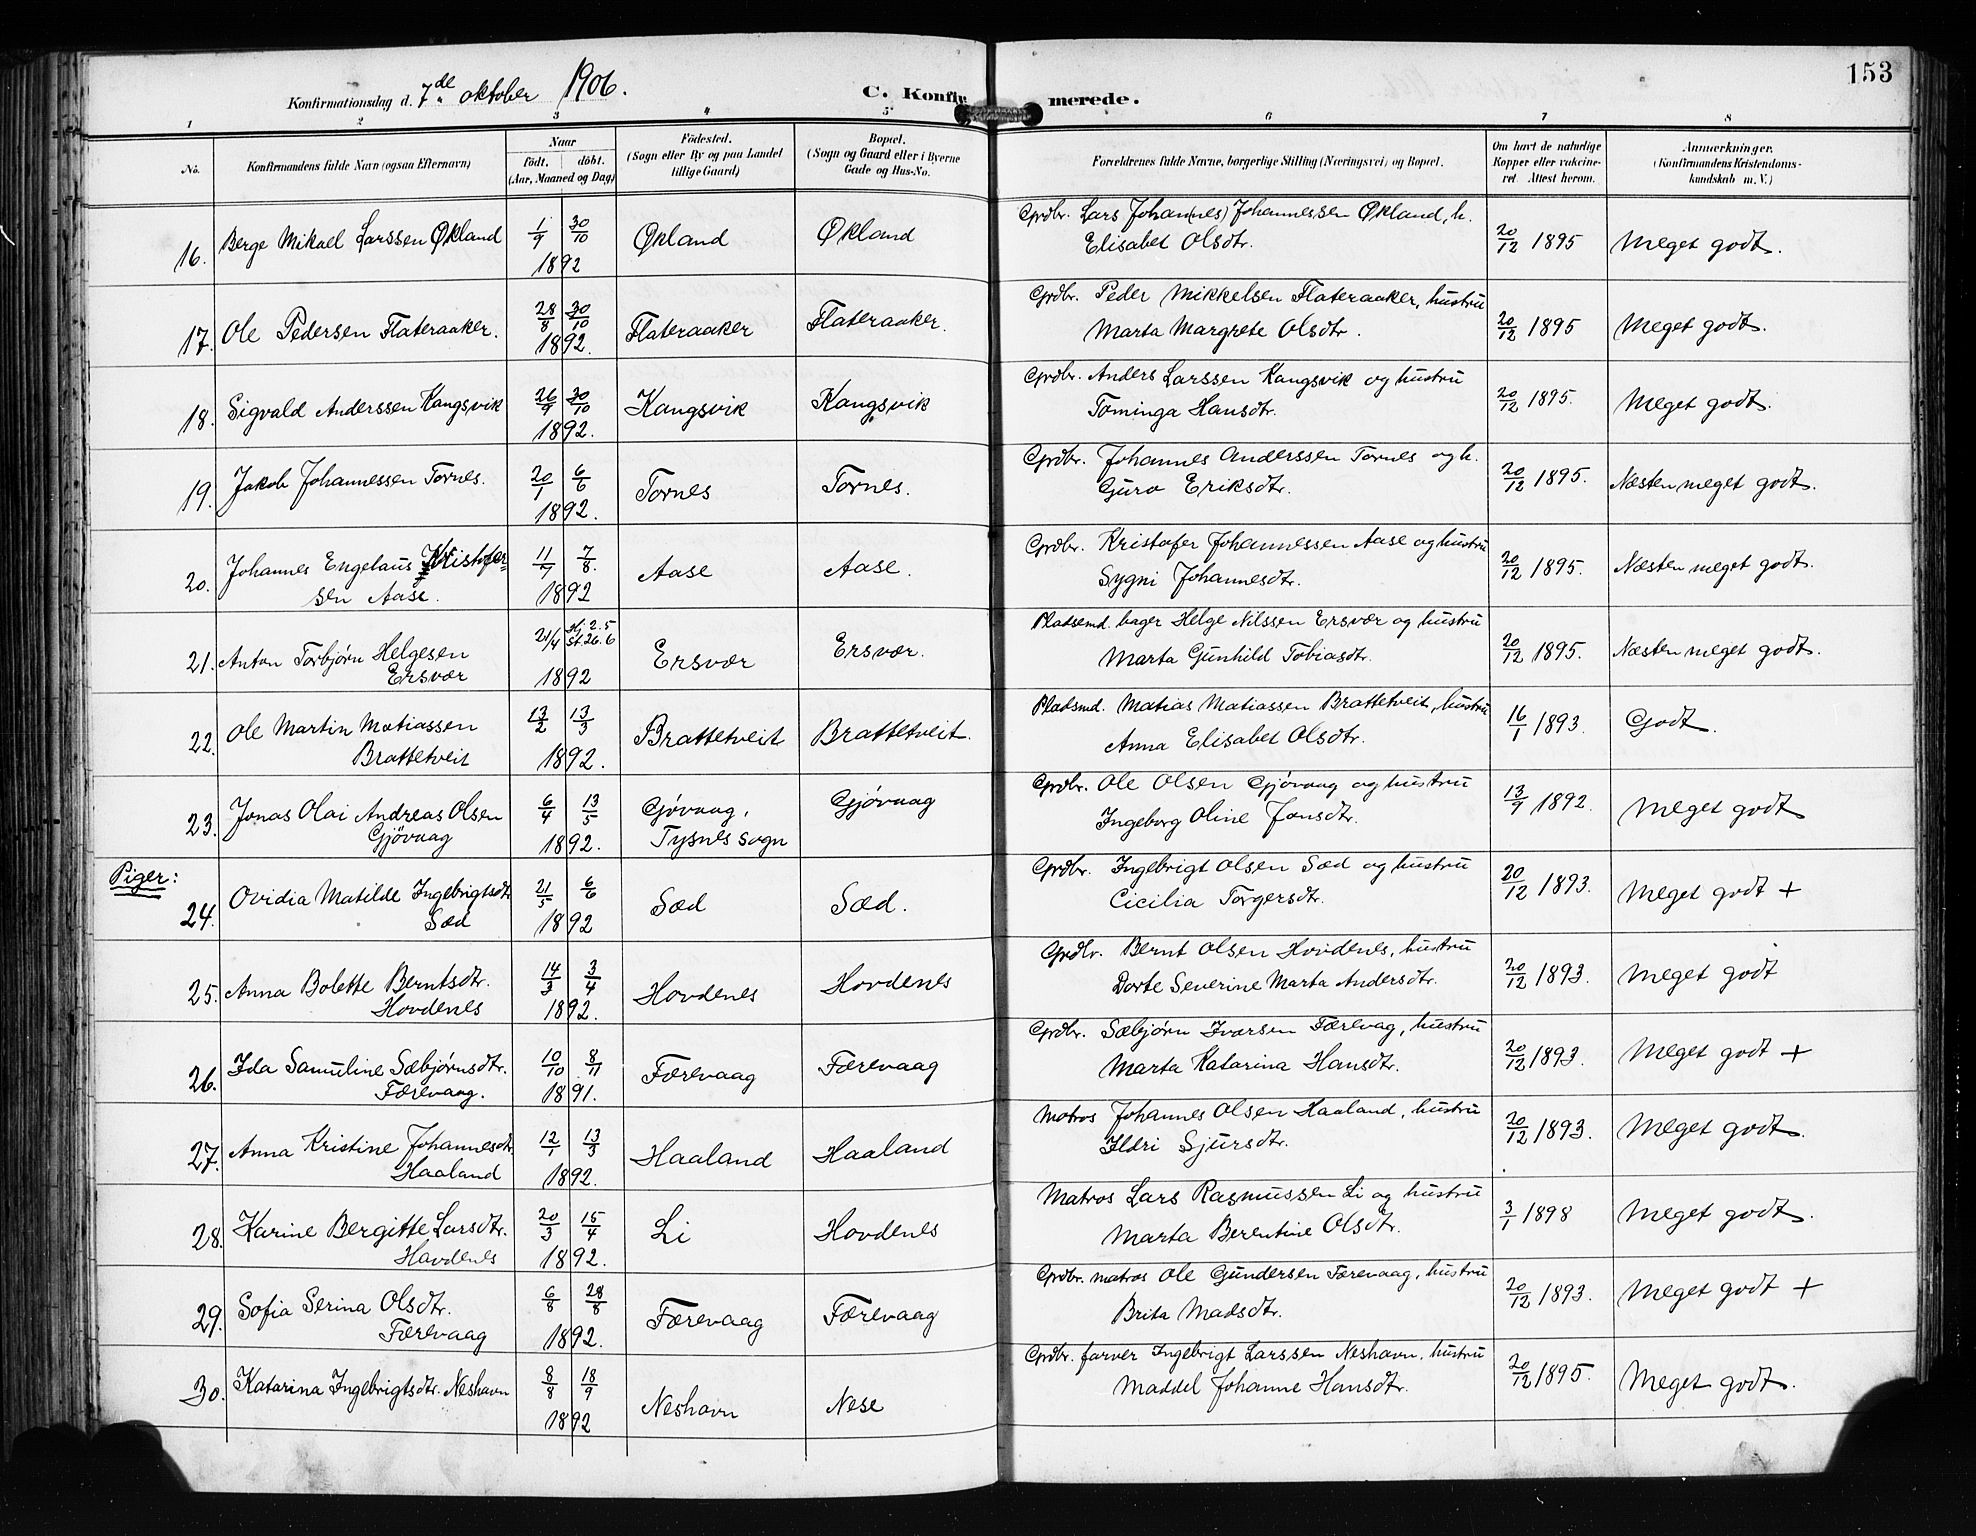 153
Konfirmationsdag d. 7de oktober 1906.
C. Konfirmerede.
1 2 3 4 5 6 7 8
No. Konfirmandens fulde Navn (ogsaa Efternavn) Naar født, døbt. (Aar, Maaned og Dag) Födested. (Sogn eller By og paa Landet tillige Gaard) Bopæl. (Sogn og Gaard eller i Byerne Gade og Hus-No. Forældrenes fulde Navne, borgerlige Stilling (Næringsvei) og Bopæl. Om havt de naturlige Kopper eller vakcineret. Attest herom. Anmærkninger. (Konfirmandens Kristendomskundskab m. V.)
16. Berge Mikael Larssen Økland 1/9 30/10 1892 Økland Økland Grdbr. Lars Johan(nes) Johannessen Økland, h. Elisabet Olsdtr. 20/12 1895 Meget godt.
17. Ole Pedersen Flateraaker. 28/8 30/10 1892. Flateraaker Flateraaker. Grdbr. Peder Mikkelsen Flateraaker, hustru Marta Margrete Olsdtr. 20/12 1895 Meget godt.
18. Sigvald Anderssen Kangsvik 26/9 30/10 1892. Kangsvik Kangsvik Grdbr. Anders Larssen Kangsvik og hustru Tominga Hansdtr. 20/12 1895. Meget godt.
19. Jakob Johannessen Tornes. 20/1 6/6 1892. Tornes Tornes. Grdbr. Johannes Anderssen Tornes og h. Guro Eriksdtr. 20/12 1895. Næsten meget godt.
20. Johannes Engelaus Kristofersen Aase. 11/7 7/8. 1892 Aase Aase. Grdbr. Kristofer Johannessen Aase og hustru Sygni Johannesdtr. 20/12 1895. Næsten meget godt.
21. Anton Torbjørn Helgesen Ersvær 21/4 Hj. 2.5 St. 26.6 1892 Ersvær Ersvær. Pladsemd. bager Helge Nilssen Ersvær og hustru Marta Gunhild Tobiasdtr. 20/12 1895. Næsten meget godt.
22. Ole Martin Matiassen Brattetveit 13/2 13/3 1892. Brattetveit Brattetveit. Pladsmd. Matias Matiassen Brattetveit, hustru Anna Elisabet Olsdtr. 16/1 1893. Godt.
23. Jonas Olai Andreas Olsen Gjövaag 6/4 13/5 1892. Gjövaag, Tysnes sogn Gjövaag Grdbr. Ole Olsen Gjövaag og hustru Ingeborg Oline Jonsdtr. 13/9 1892. Meget godt
Piger:
24. Ovidia Matilde Ingebrigtsdtr. Sæd 21/5 6/6 1892 Sæd Sæd. Grdbr. Ingebrigt Olsen Sæd og hustru Cicilia Torgersdtr. 20/12 1893. Meget godt +
25. Anna Bolette Berntsdtr. Hovdenes 14/3 3/4 1892. Hovdenes Hovdenes Grdbr. Bernt Olsen Hovdenes, hustru Dorte Severine Marta Andersdtr. 20/12 1893. Meget godt
26. Ida Samuline Sæbjørnsdtr. Færevaag. 10/10 8/11 1891. Færevaag Færevaag Grdbr. Sæbjørn Ivarsen Færevag, hustru Marta Katarina Hansdtr. 20/12 1893. Meget godt +
27. Anna Kristine Johannesdtr. Haaland 12/1 13/3 1892. Haaland Haaland Matros Johannes Olsen Haaland, hustru Ildri Sjursdtr. 20/12 1893. Meget godt.
28. Karine Bergitte Larsdtr. Hovdenes 20/3 15/4 1892. Li Hovdenes Matros Lars Rasmussen Li og hustru Marta Berentine Olsdtr. 3/1 1898 Meget godt.
29. Sofia Serina Olsdtr. Færevaag 6/8 28/8 1892. Færevaag Færevaag Grdbr. matros Ole Gundersen Færevaag, hustru Brita Madsdtr. 20/12 1893. Meget godt +
30. Katarina Ingebrigtsdtr. Neshavn 8/8 18/9 1892 Neshavn Nese Grdbr. farver Ingebrigt Larssen Neshavn, hustru Maddel Johanne Hansdtr. 20/12 1895. Meget godt.